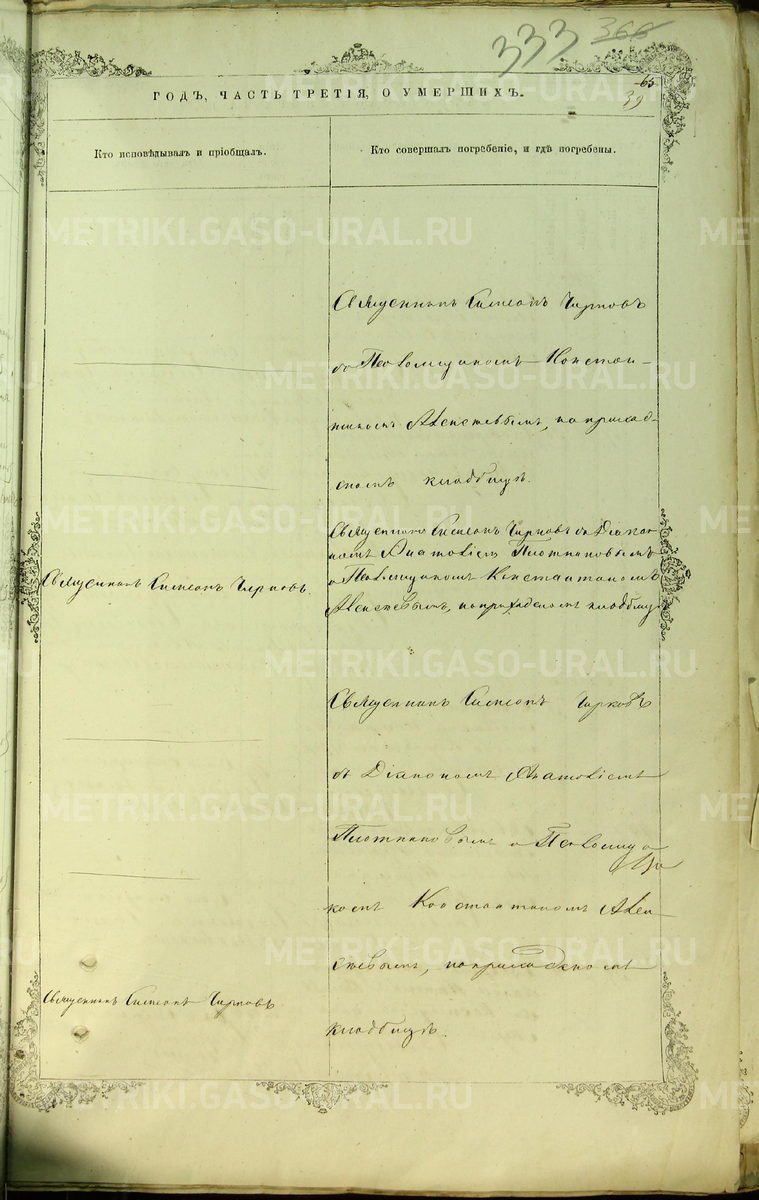 333 366
65
39
ГОДЪ, ЧАСТЬ ТРЕТІЯ, О УМЕРШИХЪ.
Кто исповѣдывалъ и пріобщалъ.
Кто совершалъ погребеніе, и гдѣ погребены.
Священникъ Симеонъ Чирковъ
съ Псаломщикомъ Констан-
тиномъ, на приход-
скомъ кладбищѣ.
Священникъ Симеонъ Чирковъ съ Діако-
номъ Анатоліемъ Плотниковымъ
и Псаломщикомъ Константиномъ
, на приходскомъ кладбищѣ
Священникъ Симеонъ Чирковъ.
Священникъ Симеонъ Чирковъ
съ Діакономъ Анатоліемъ
Плотниковымъ и Псаломщи-
комъ Константиномъ
, на приходскомъ
кладбищѣ.
Священникъ Симеонъ Чирковъ
METRIKI.GASO-URAL.RU